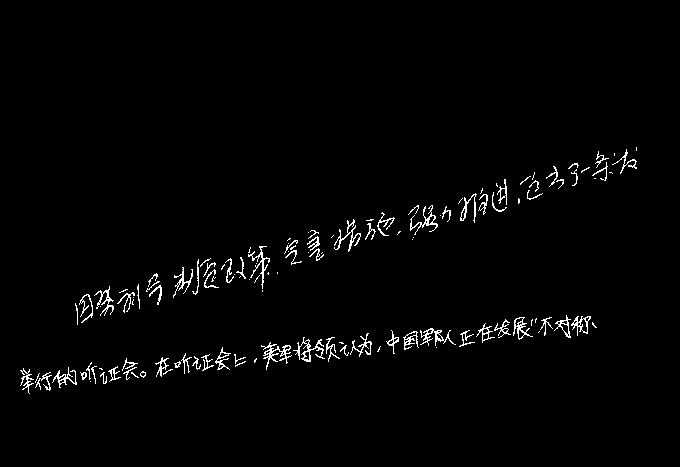 因势利导制定政策,完善措施,强力推进,迈出了一条发
举行的听证会。在听证会上,美军将领认为,中国军队正在发展“不对称、